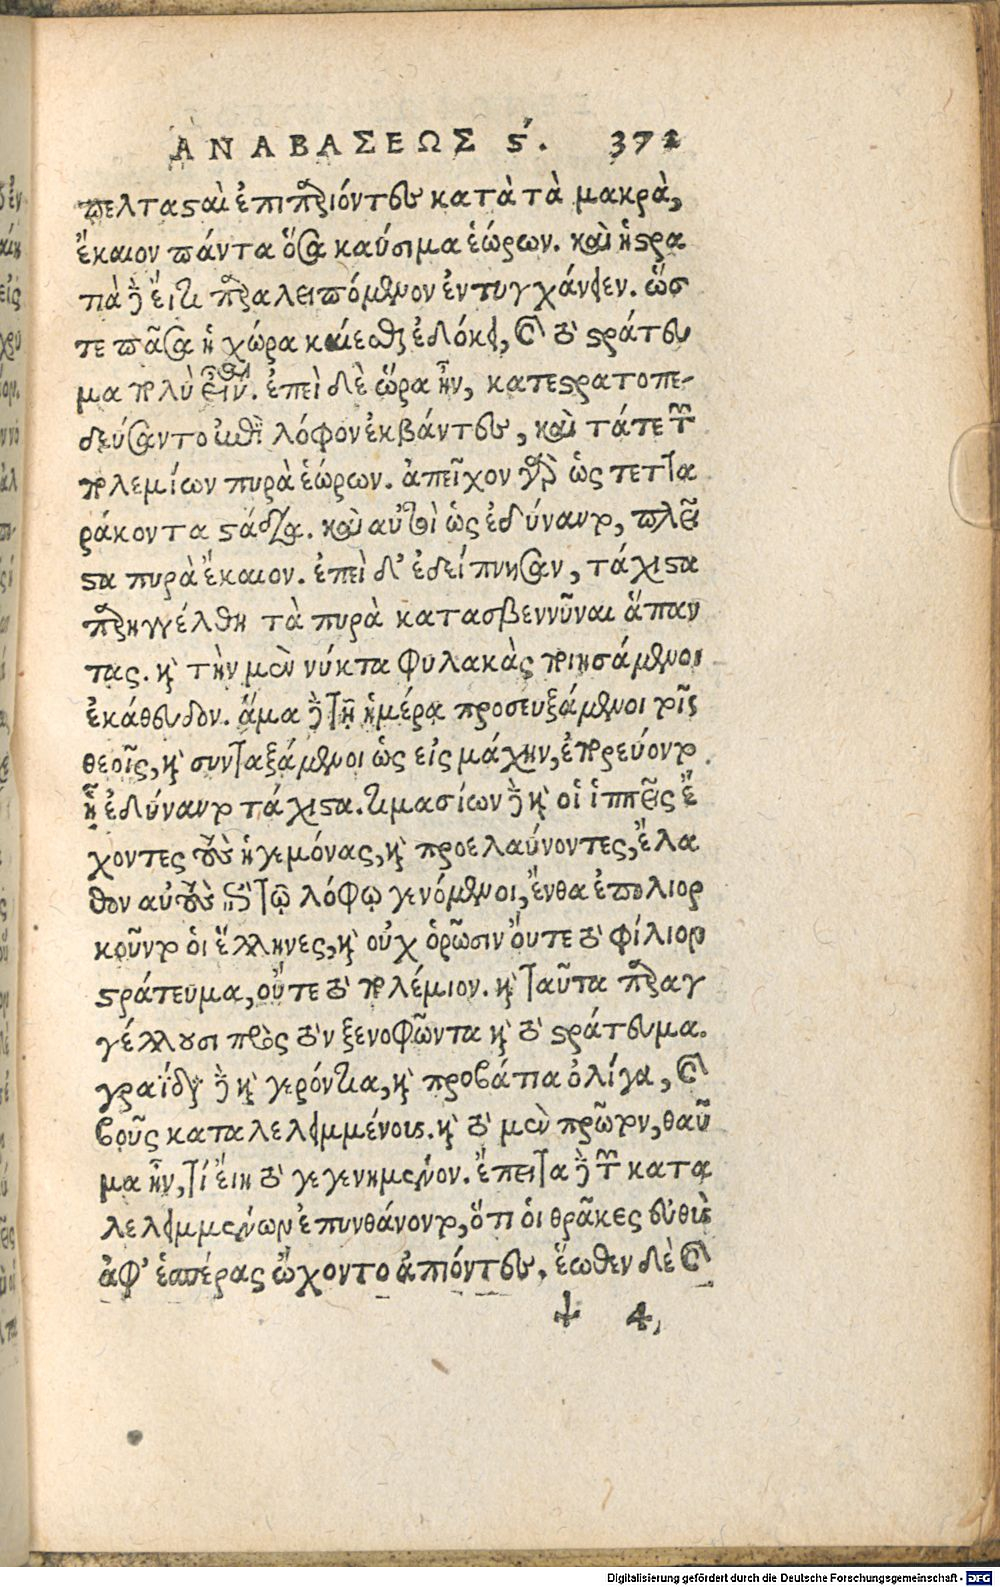 ΑΝΑΒΑΣΕΩΣ ϛ΄. 372
πελταϛαὶ ἐπιπαριόντες κατὰ τὰ μακρὰ,
ἔκαιον πάντα ὅσα καύσιμα ἑώρων. καὶ ἡ ϛρα
τιὰ δὲ εἴ τι παραλειπόμενον ἐντυγχάνοιεν. ὥσ
τε πᾶσα ἡ χώρα καίεσθαι ἐδόκει, καὶ τὸ ϛράτευ
μα πολὺ εἶναι. ἐπεὶ δὲ ὥρα ἦν, κατεϛρατοπε-
δεύσαντο ἐπὶ λόφον ἐκβάντες, καὶ τά τε τῶν
πολεμίων πυρὰ ἑώρων. ἀπεῖχον γὰρ ὡς τετλα
ράκοντα ϛάδια. καὶ αὐτοὶ ὡς ἐδύναντο, πλεῖ
ϛα πυρὰ ἔκαιον. ἐπεὶ δ' ἐδείπνησαν, τάχιϛα
παρηγγέλθη τὰ πυρὰ κατασβεννῦναι ἅπαν
τας. καὶ τὴν μὲν νύκτα φυλακὰς ποιησάμενοι
ἐκάθευδον. ἅμα δὲ τῇ ἡμέρᾳ προσευξάμενοι τοῖς
θεοῖς, καὶ συνταξάμενοι ὡς εἰς μάχην, ἐπορεύοντο
ᾗ ἐδύναντο τάχιϛα. τιμασίων δὲ καὶ οἱ ἱππεῖς ἔ
χοντες τοὺς ἡγεμόνας, καὶ προελαύνοντες, ἔλα
θον αὐτοὺς ἐπὶ τῷ λόφῳ γενόμενοι, ἔνθα ἐπολιορ
κοῦντο οἱ ἕλληνες, καὶ οὐχ ὁρῶσιν οὔτε τὸ φίλιον
ϛράτευμα, οὔτε τὸ πολέμιον. καὶ ταῦτα παραγ
γέλλουσι πρὸς τὸν ξενοφῶντα καὶ τὸ ϛράτευμα.
γραΐδια δὲ καὶ γερόντια, καὶ προβάτια ὀλίγα, καὶ
βοῦς καταλελειμμένους. καὶ τὸ μὲν πρῶτον, θαῦ
μα ἦν, τί εἴη τὸ γεγενημένον. ἔπειτα δὲ τῶν κατα
λελειμμένων ἐπυνθάνοντο, ὅτι οἱ θρᾶκες εὐθὺς
ἀφ' ἑσπέρας ᾤχοντο ἀπιόντες. ἕωθεν δὲ καὶ
4,
Digitalisierung gefördert durch die Deutsche Forschungsgemeinschaft - DFG